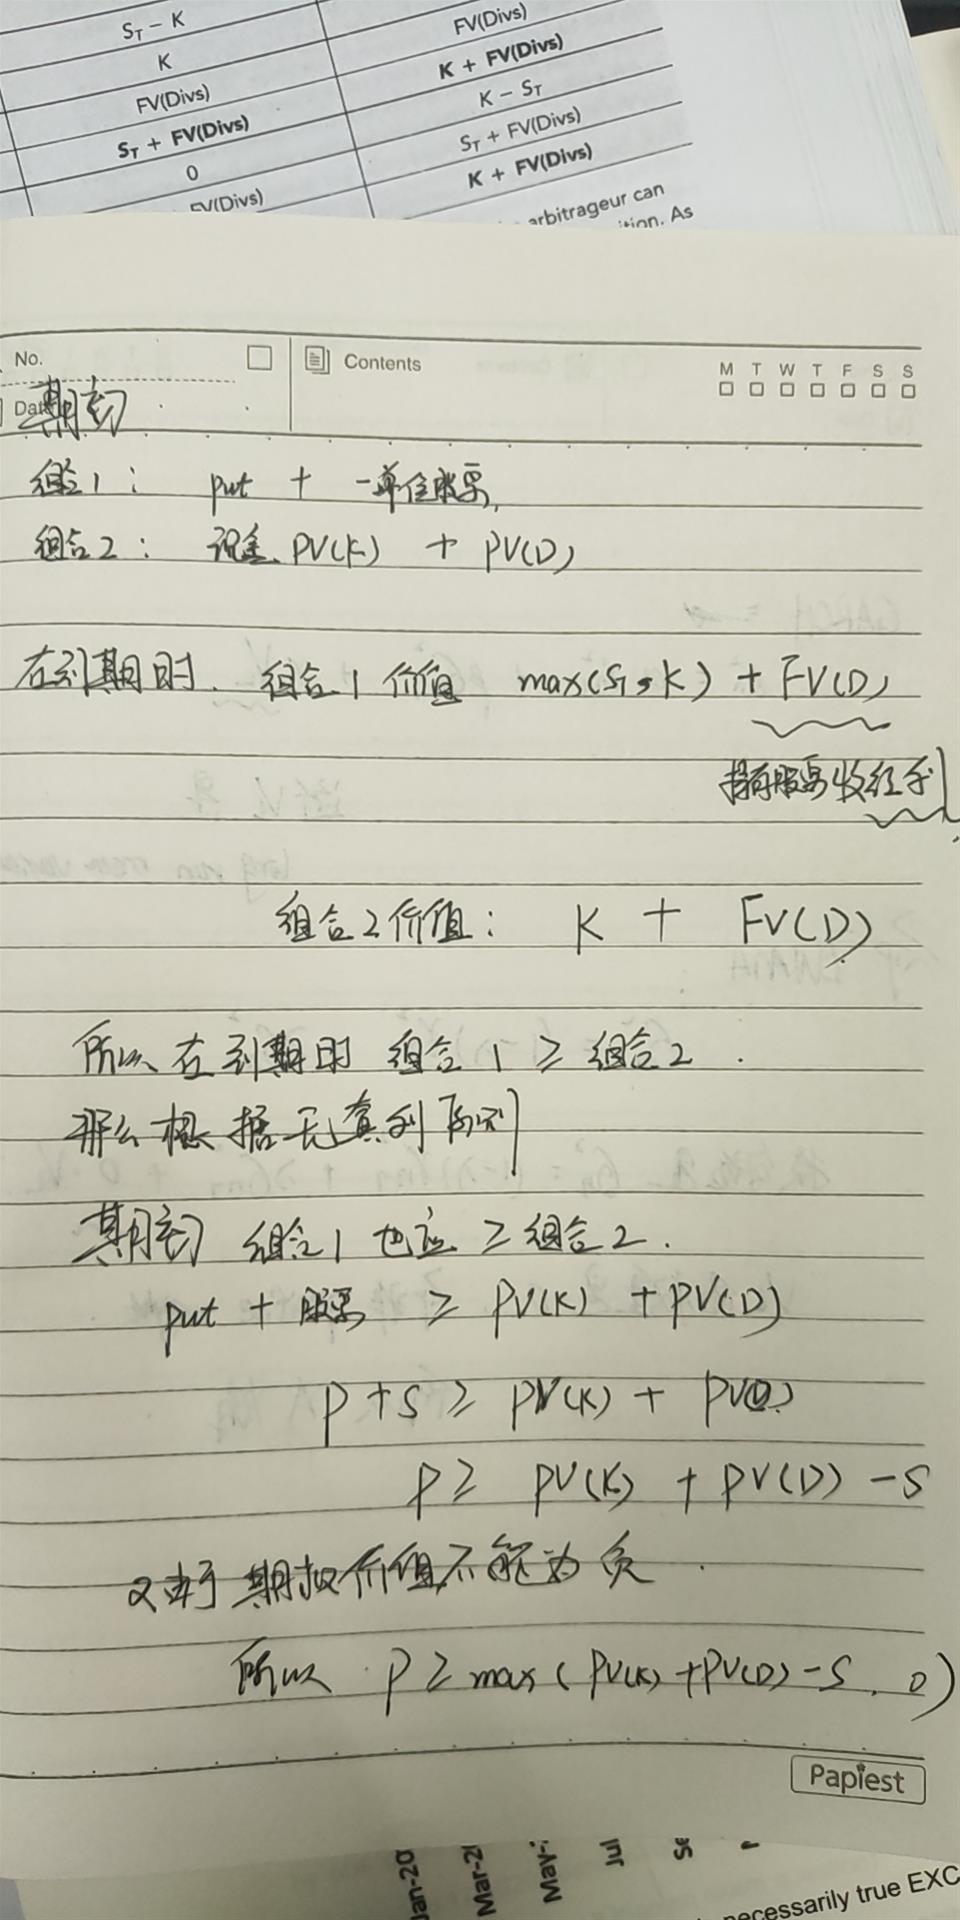 S_T − K
FV(Divs)
K
K + FV(Divs)
FV(Divs)
K − S_T
S_T + FV(Divs)
S_T + FV(Divs)
0
K + FV(Divs)
FV(Divs)
arbitrageur can
ition. As
No.
Contents
M T W T F S S
Dat
期初
组合1： put + 一单位股票
组合2： 现金 PV(K) + PV(D)
在到期时 组合1价值 max(S_T, K) + FV(D)
持有股票收红利
组合2价值： K + FV(D)
所以在到期时 组合1 ≥ 组合2 .
那么根据无套利原则
期初 组合1 也应 ≥ 组合2 .
put + 股票 ≥ PV(K) + PV(D)
P + S ≥ PV(K) + PV(D)
P ≥ PV(K) + PV(D) − S
又由于期权价值不能为负 .
所以 P ≥ max ( PV(K) + PV(D) − S , 0 )
Papiest
Jan-20
Mar-2
May-
Jul
Se
ecessarily true EXC